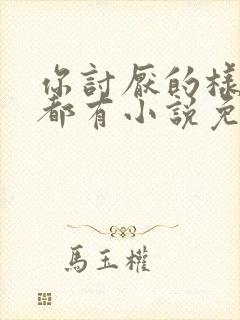 你討厭的樣
都有小說免
馬玉權